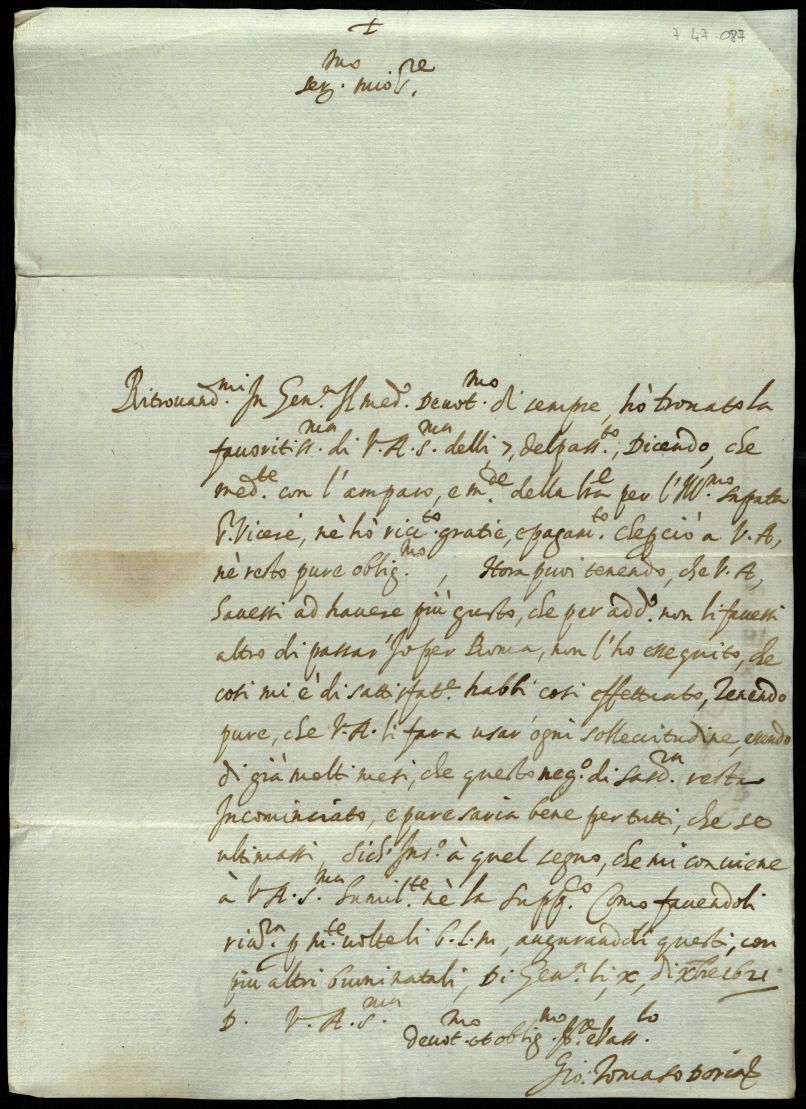 +
7 47 087
Ser.mo mio S.re
Ritrouand.mi In Gen.a Il med.o Deuot.mo di sempre, hò trouato la
fauoritiss.ma di V. A. S.ma delli 7, del pass.to, Dicendo, che
med.te con l'amparo, e m.de della l.ra per l'Ill.mo
Vicerè, nè hò rice.to gratie, e pagam.to che perciò a V. A,
nè resto pure oblig.mo, Hora poi tenendo, che V. A,
hauessi ad hauere più gusto, che per add.o non li facessi
altro di passar' Io per Roma, non l'ho esseguito, che
così mi è di sattisfat.e habbi così effettuato, Tenendo
pure, che V. A. li farà usar' ogni sollecitudine, essendo
di già molti mesi, che questo neg.o di Sard.na resta
Incominciato, e pure saria bene per tutti, che se
ultimassi, à quel segno, che mi conuiene
à V. A. S.ma humil.te nè la supp.co Como facendoli
riu.za per m.te uolte li b. l. m, augurandoli questi, con
più altri buoni natali, Di Gen.a li, x, di xbre
D. V. A. S.ma
deuot.mo et oblig.mo ser.re e Vass.lo
Gio: Tomaso Doria